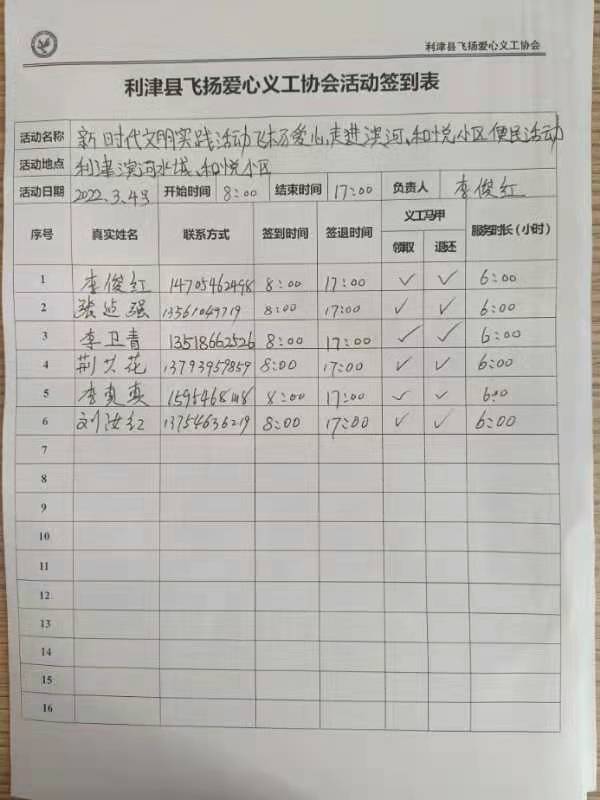 利津县飞扬爱心义工协会
利津县飞扬爱心义工协会活动签到表
活动名称 新时代文明实践活动飞扬爱心,走进滨河、和悦小区便民活动
活动地点 利津滨河水城、和悦小区
活动日期 2022.3.4号 开始时间 8:00 结束时间 17:00 负责人 李俊红
序号 真实姓名 联系方式 签到时间 签退时间 义工马甲 服务时长(小时)
领取 退还
1 李俊红 14705462498 8:00 17:00 ✓ ✓ 6:00
2 强 13561049719 8:00 17:00 ✓ ✓ 6:00
3 李卫青 13518662526 8:00 17:00 ✓ ✓ 6:00
4 荆兰花 13793959859 8:00 17:00 ✓ ✓ 6:00
5 李真真 8:00 17:00 ✓ ✓ 6:00
6 刘汝红 13754636219 8:00 17:00 ✓ ✓ 6:00
7
8
9
10
11
12
13
14
15
16